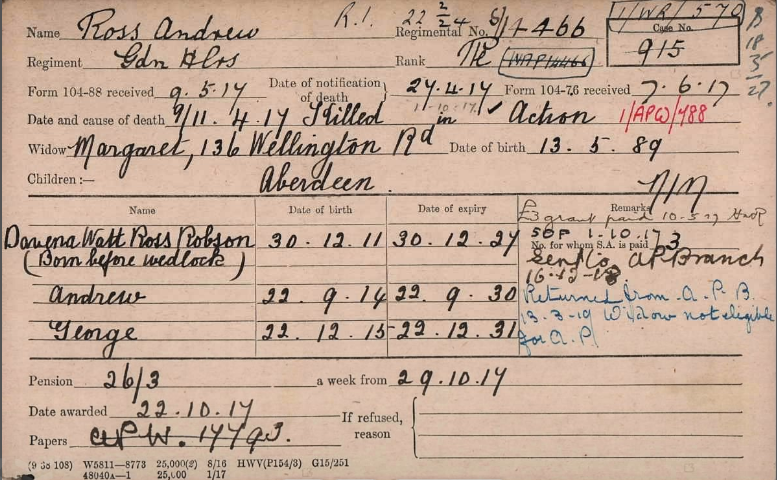 R.I. 22 2/24 1/WR/570
Name Ross Andrew Regimental No. S/4466 Case No. 915
Regiment Gdn Hlrs Rank Pte
Form 104-88 received 9.5.17 Date of notification of death 27.4.17 Form 104-76 received 7.6.17
Date and cause of death 9/11.4.17 Killed in Action 1/APW/788
Widow Margaret, 136 Wellington Rd Date of birth 13.5.89
Children :— Aberdeen.
Name Date of birth Date of expiry Remarks
£3 grant paid 10-5-17
Davena Watt Ross Robson 30.12.11 30.12.27 SOP 1-10-17
(Born before wedlock) No. for whom S.A. is paid 3
Sent to AP Branch
16-12-18
Andrew 22.9.14 22.9.30 Returned from A.P.B.
13-3-19 Widow not eligible
George 22.12.15 22.12.31 for A.P.
Pension 26/3 a week from 29.10.17
Date awarded 22.10.17 If refused, reason
Papers APW. 17793.
(9 38 108) W5811—8773 25,000(2) 8/16 HWV(P154/3) G15/251
48040A—1 25,000 1/17